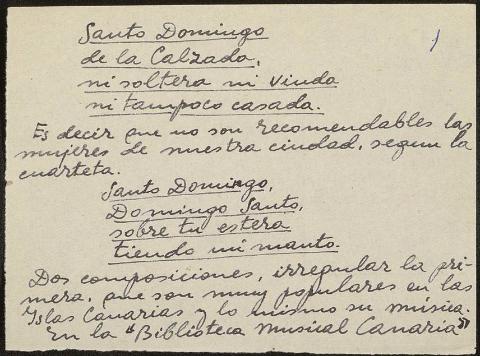 Santo Domingo
1
de la Calzada,
ni soltera ni viuda
ni tampoco casada.
Es decir que no son recomendables las
mujeres de nuestra ciudad, segun la
cuarteta.
Santo Domingo,
Domingo Santo,
sobre tu estera
tiendo mi manto.
Dos composiciones, irregular la pri-
mera, que son muy populares en las
Islas Canarias y lo mismo su música.
En la "Biblioteca Musical Canaria"